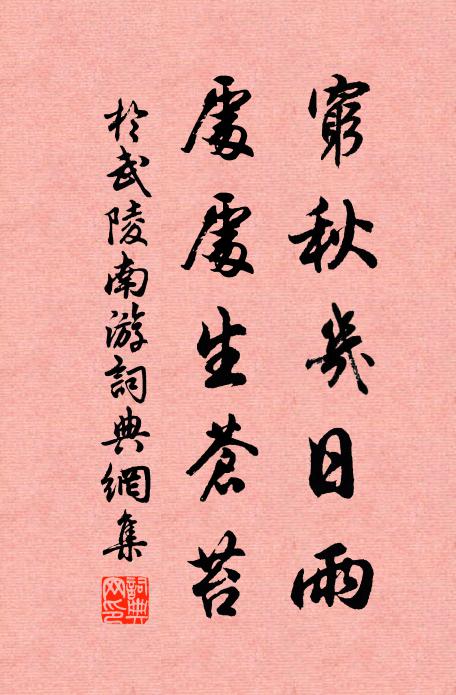 窮秋幾日雨
處處生蒼苔
於武陵南游詞典網集
詞典網印